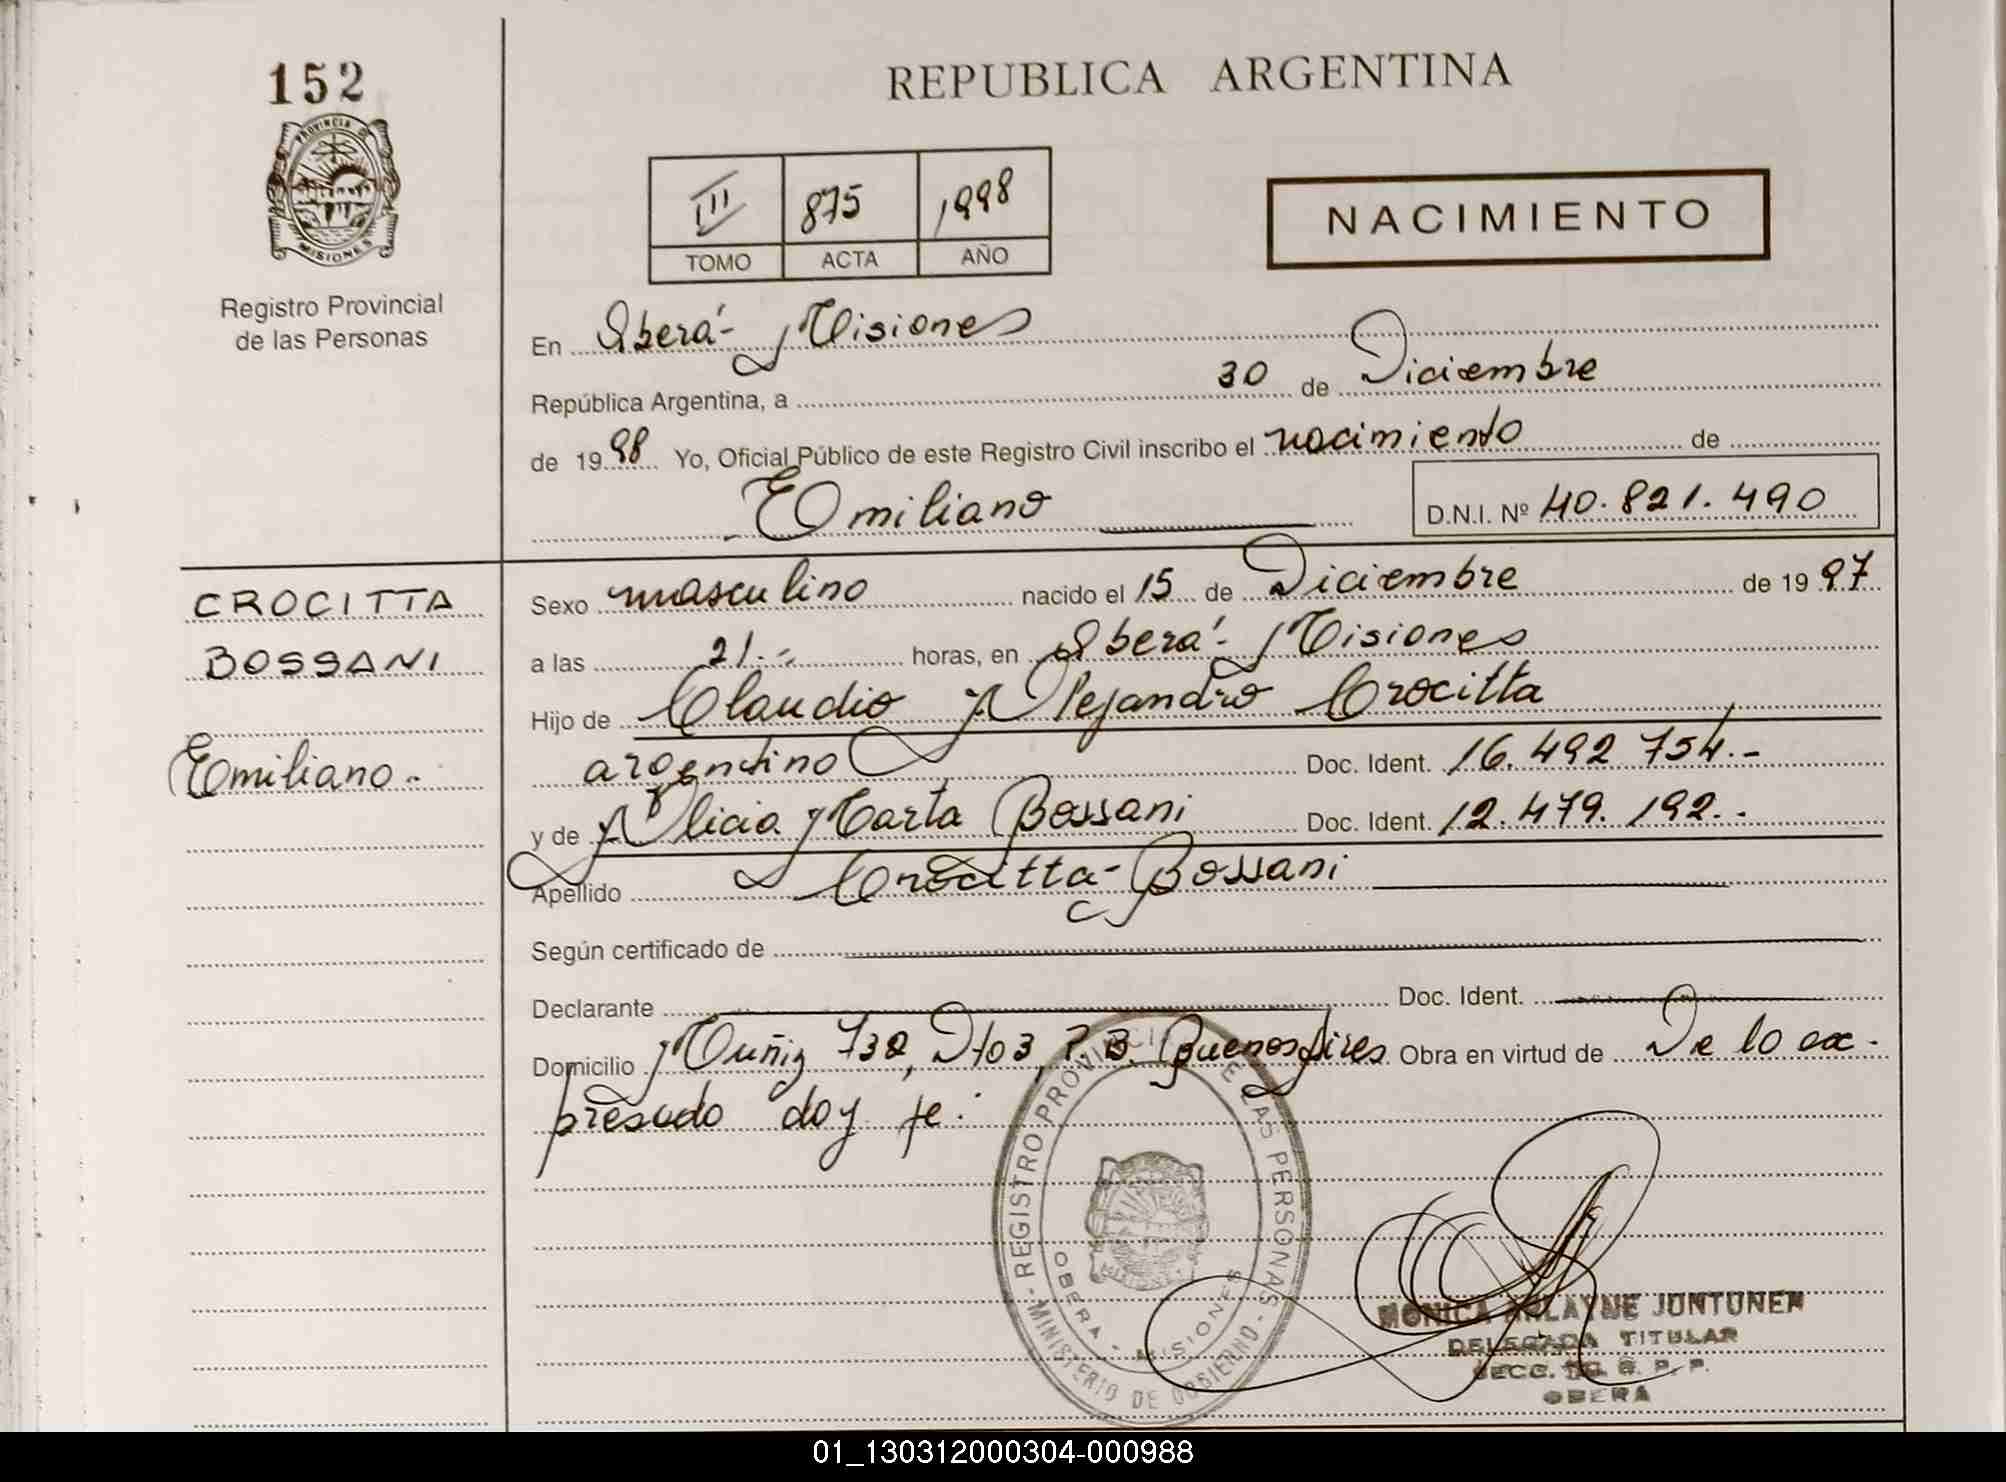 152
PROVINCIA D
MISIONES
Registro Provincial
de las Personas
REPUBLICA ARGENTINA
III 875 1998
TOMO ACTA AÑO
NACIMIENTO
En Oberá - Misiones
República Argentina, a 30 de Diciembre
de 1998 Yo, Oficial Público de este Registro Civil inscribo el nacimiento de
Emiliano
D.N.I. Nº 40.821.490
CROCITTA
BOSSANI
Emiliano.-
Sexo masculino nacido el 15 de Diciembre de 1997
a las 21.- horas, en Oberá - Misiones
Hijo de Claudio Alejandro Crocitta
argentino Doc. Ident. 16.492 754.-
y de Alicia Marta Bossani Doc. Ident. 12.479.192.-
Apellido Crocitta - Bossani
Según certificado de
Declarante Doc. Ident.
Domicilio Muñiz 732, Dto 3, P.B. Buenos Aires Obra en virtud de De lo ex-
presado doy fe.
REGISTRO PROVINCI E LAS PERSONAS
- MINISTERIO DE GOBIERNO -
OBERA - MISIONES
MONICA JUNTUNEN
DELEGADA TITULAR
SECC. R. P. P.
OBERA
01_130312000304-000988